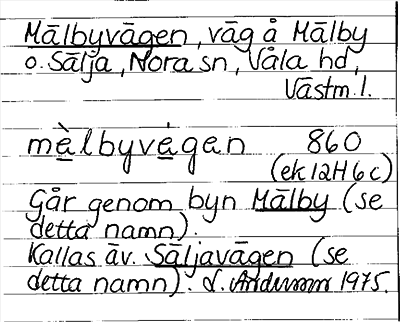 Mälbyvägen, väg å Mälby
o. Sälja, Nora sn, Våla hd,
Västm. l.
mèlbyvégan 860
(ek 12H 6c)
Går genom byn Mälby (se
detta namn).
Kallas äv. Säljavägen (se
detta namn). 1975.